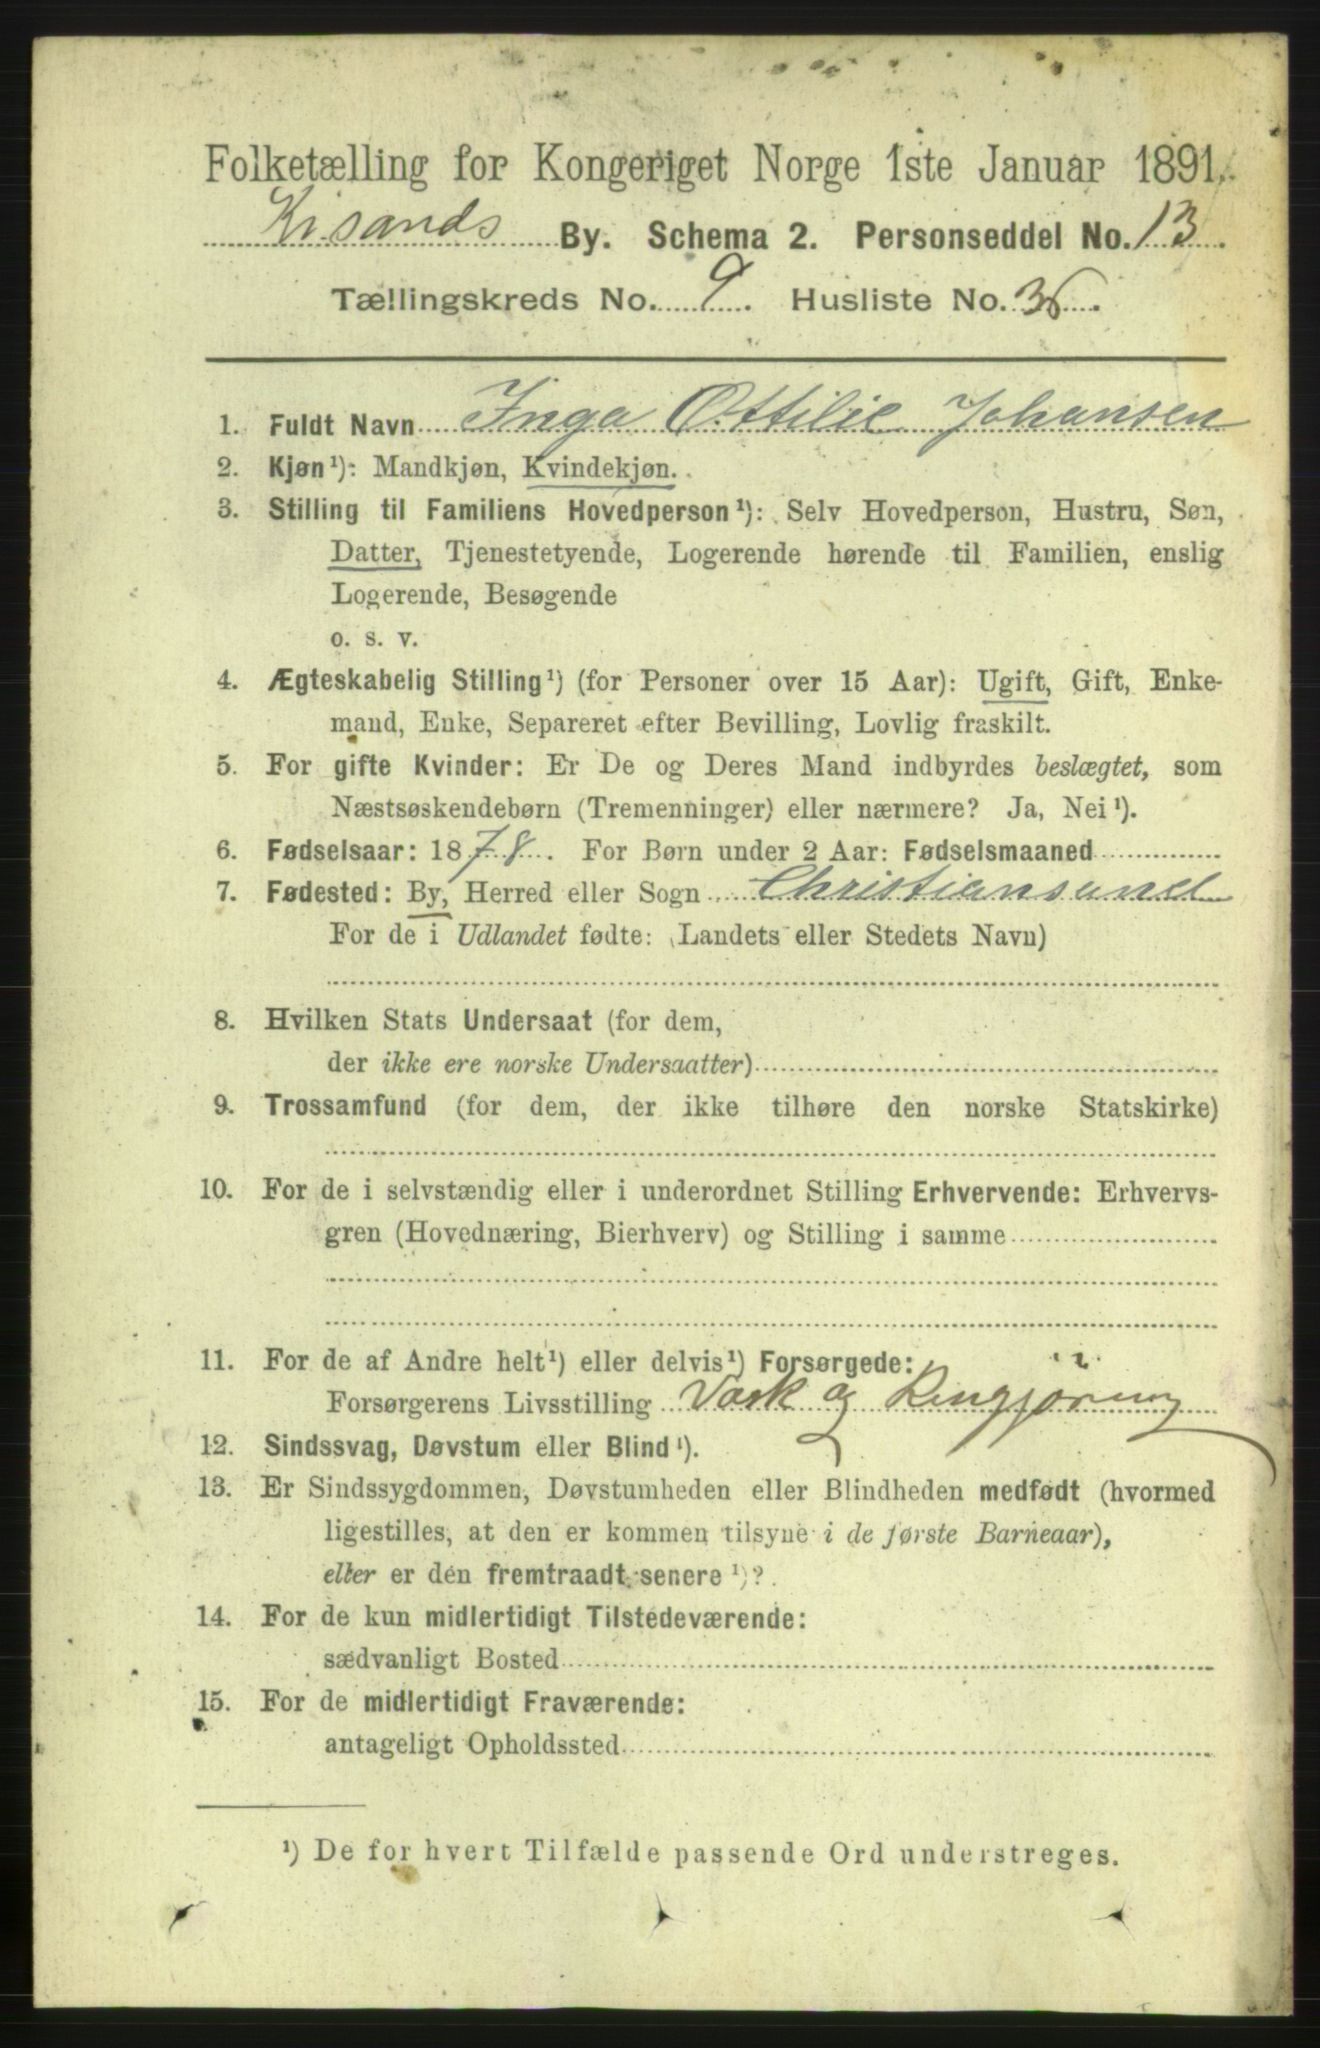 Folketælling for Kongeriget Norge 1ste Januar 1891.
Kr.sands By. Schema 2. Personseddel No. 13.
Tællingskreds No. 9. Husliste No. 36.
1. Fuldt Navn Inga Ottilie Johansen
2. Kjøn¹): Mandkjøn, Kvindekjøn.
3. Stilling til Familiens Hovedperson¹): Selv Hovedperson, Hustru, Søn,
Datter, Tjenestetyende, Logerende hørende til Familien, enslig
Logerende, Besøgende
o. s. v.
4. Ægteskabelig Stilling¹) (for Personer over 15 Aar): Ugift, Gift, Enke-
mand, Enke, Separeret efter Bevilling, Lovlig fraskilt.
5. For gifte Kvinder: Er De og Deres Mand indbyrdes beslægtet, som
Næstsøskendebørn (Tremenninger) eller nærmere? Ja, Nei¹).
6. Fødselsaar: 1878. For Børn under 2 Aar: Fødselsmaaned
7. Fødested: By, Herred eller Sogn Christiansand
For de i Udlandet fødte: (Landets eller Stedets Navn)
8. Hvilken Stats Undersaat (for dem,
der ikke ere norske Undersaatter)
9. Trossamfund (for dem, der ikke tilhøre den norske Statskirke)
10. For de i selvstændig eller i underordnet Stilling Erhvervende: Erhvervs-
gren (Hovednæring, Bierhverv) og Stilling i samme
11. For de af Andre helt¹) eller delvis¹) Forsørgede:
Forsørgerens Livsstilling Vask og Rengjøring
12. Sindssvag, Døvstum eller Blind¹).
13. Er Sindssygdommen, Døvstumheden eller Blindheden medfødt (hvormed
ligestilles, at den er kommen tilsyne i de første Barneaar),
eller er den fremtraadt senere¹)?
14. For de kun midlertidigt Tilstedeværende:
sædvanligt Bosted
15. For de midlertidigt Fraværende:
antageligt Opholdssted
¹) De for hvert Tilfælde passende Ord understreges.